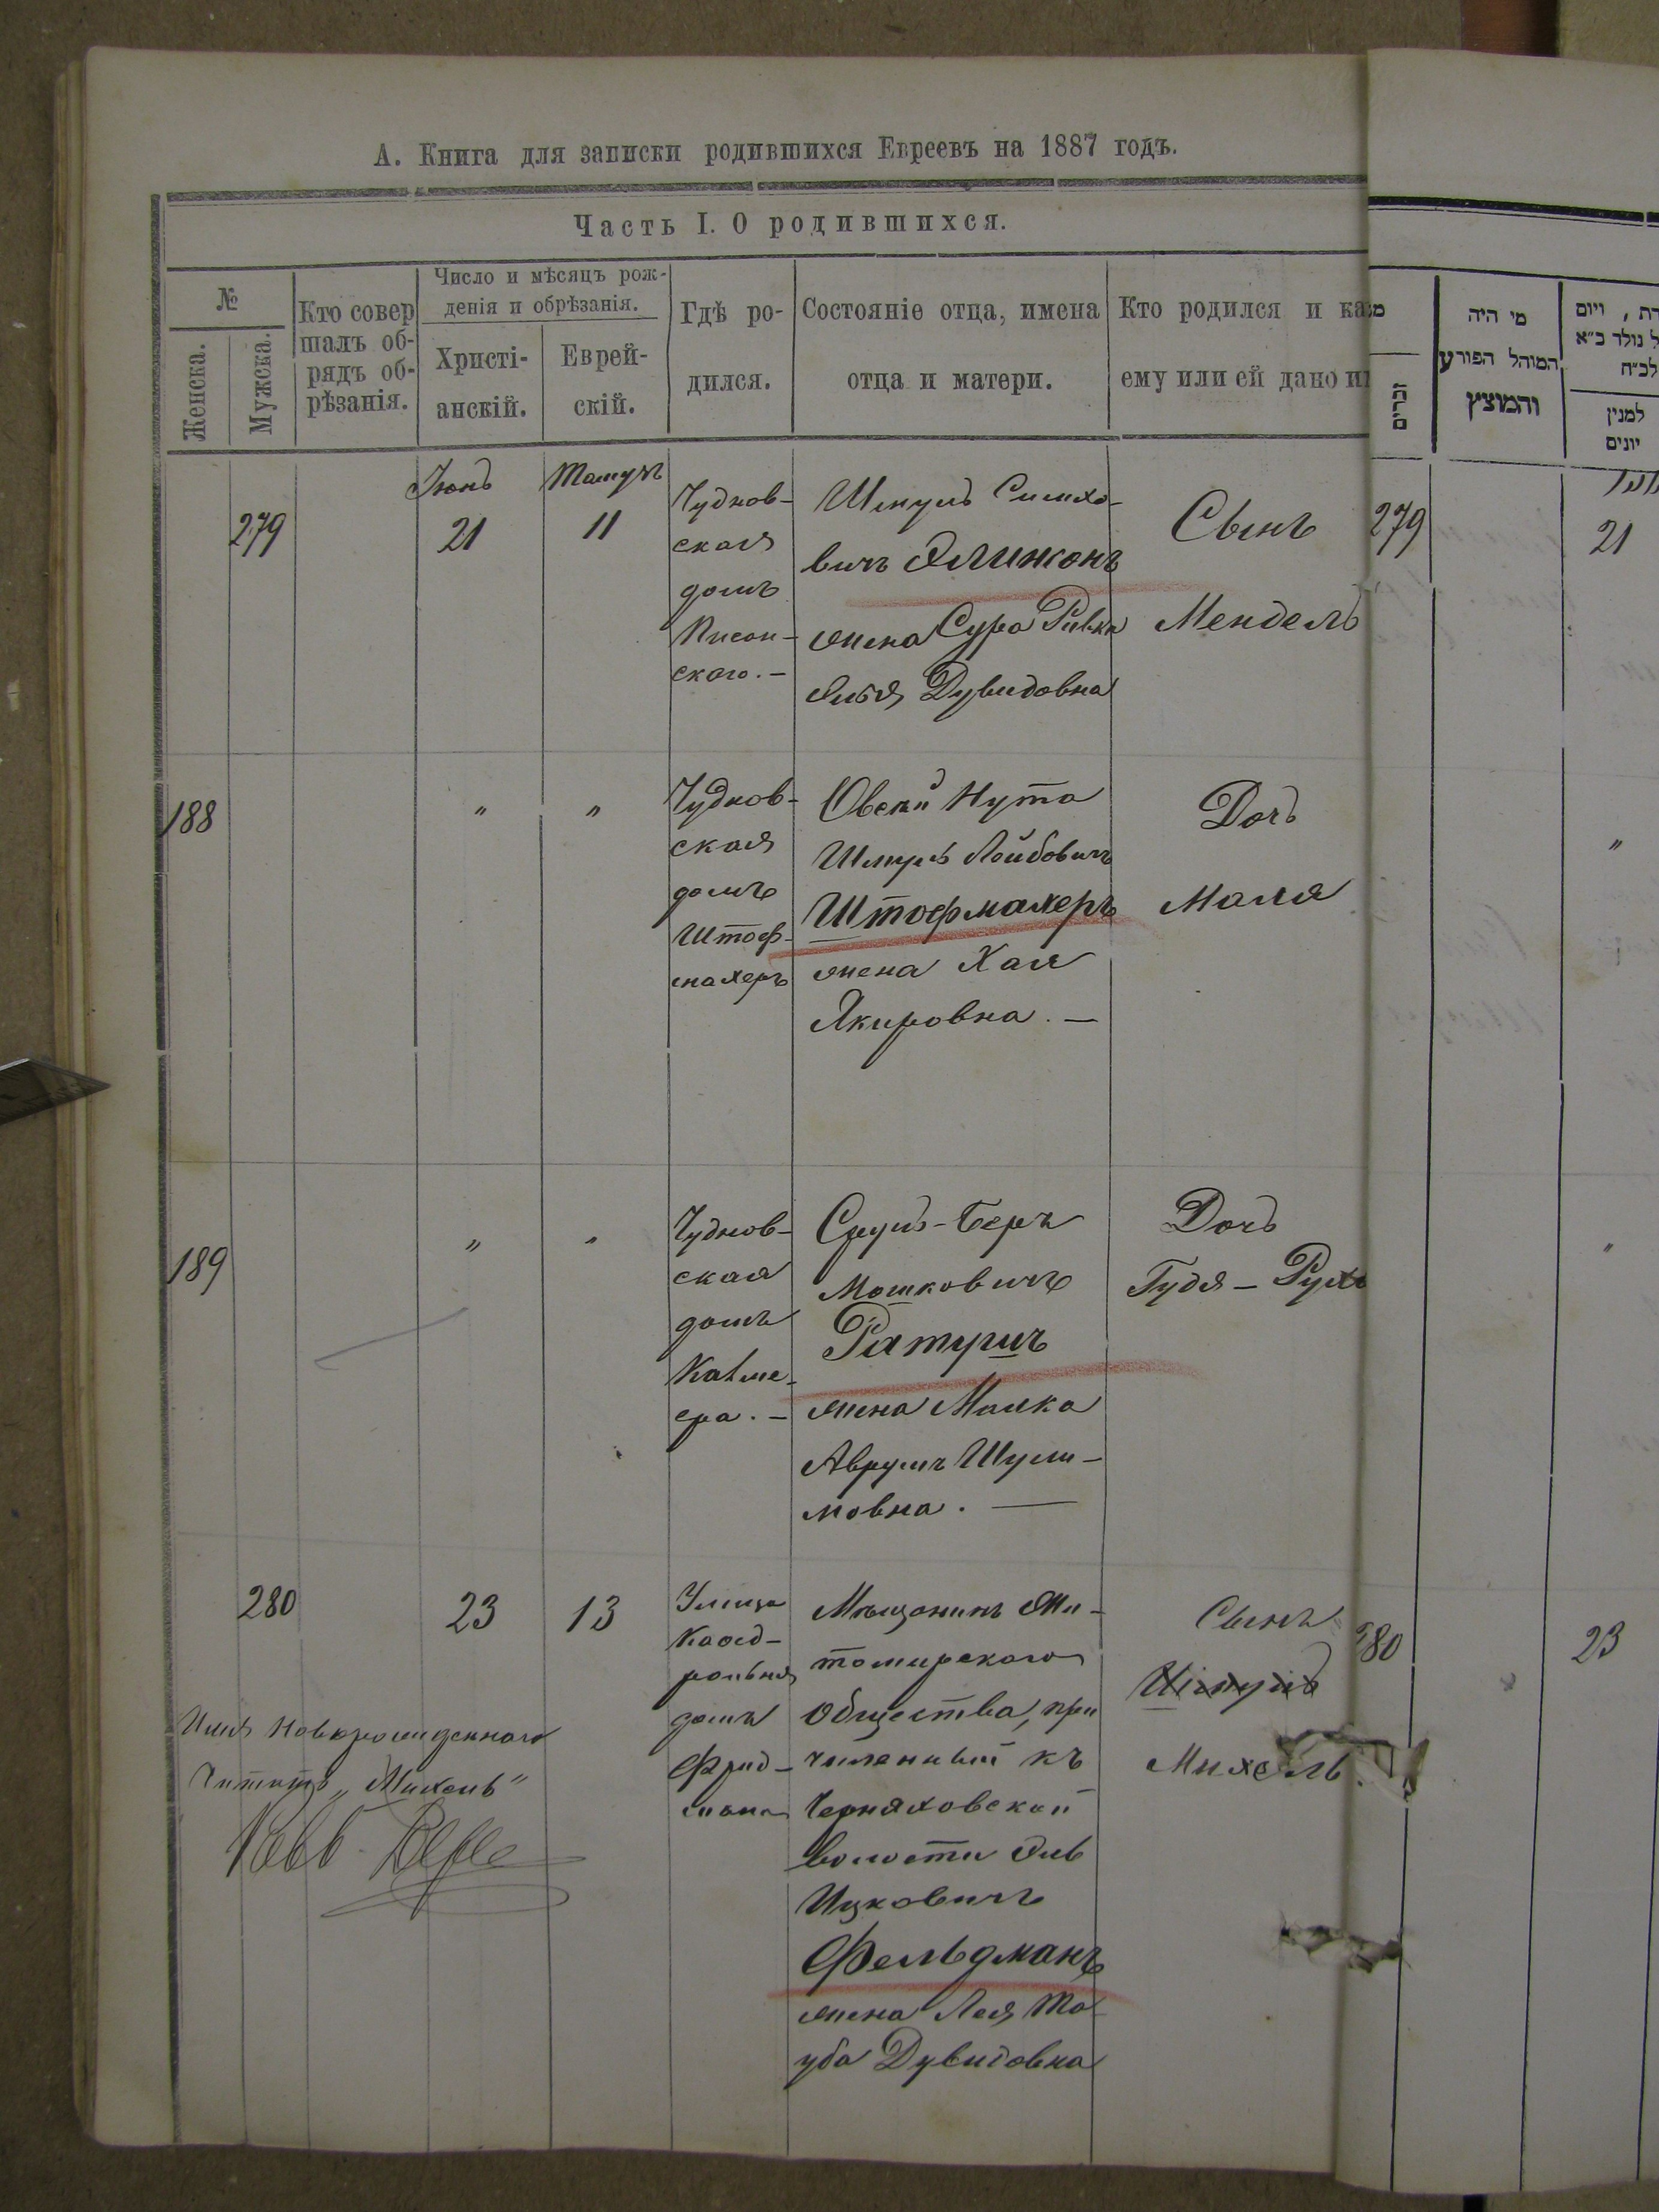 А. Книга для записки родившихся Евреевъ на 1887 годъ.
Часть I. О родившихся.
№
Женска.
Мужска.
Кто совер
шалъ об-
рядъ об-
рѣзанія.
Число и мѣсяцъ рож-
денія и обрѣзанія.
Христі-
анскій.
Еврей-
скій.
Гдѣ ро-
дился.
Состояніе отца, имена
отца и матери.
Кто родился и ка
ему или ей дано и
זכרים
מי היה
המוהל הפורע
והמוצץ
ויום
נולד כ״א
לכ״ח
למנין
יונים
279
Іюнь
21
Тамузъ
11
Чуднов-
ская
домъ
ского. —
Шмуль Симхо-
вичъ
жена Сура Ривка
Дувидовна
Сынъ
Мендель
279
21
188
"
"
Чуднов-
ская
домъ
Штоф-
махеръ
Овсей Нута
Шмуль Лейбовичъ
Штофмахеръ
жена Хая
Якировна. —
Дочь
Маля
"
189
"
"
Чуднов-
ская
домъ
ера. —
Сруль-Беръ
Мошковичъ
Ратушъ
жена Малка
Аврумъ Шули-
мовна. —
Дочь
Гудя - Рухл
"
280
23
13
Улица
Каѳед-
ральная
домъ
Фрид-
мана
Мѣщанинъ Жи-
томирскаго
общества, при
численный къ
Черняховской
волости Эль
Ицковичъ
Фельдманъ
жена Лея То-
уба Дувидовна
Сынъ
Шмуль
Михель.
280
23
Имя новорожденнаго
Читать „Михель"
Равв.